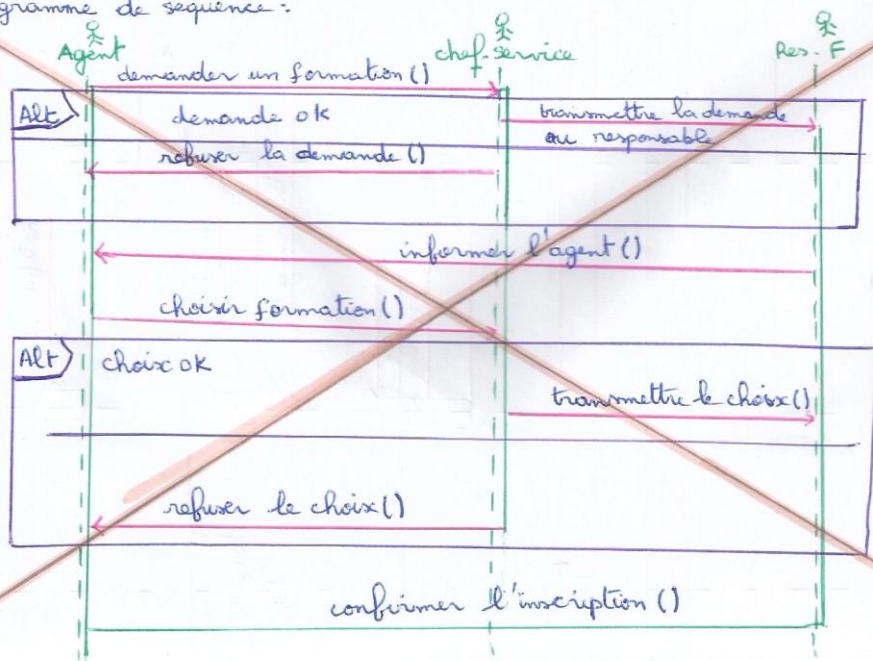 gramme de sequence :
Agent chef-service Res-F
demander un formation()
Alt demande ok transmettre la demande
au responsable
refuser la demande()
informer l'agent()
choisir formation()
Alt choix ok
transmettre le choix()
refuser le choix()
confirmer l'inscription()